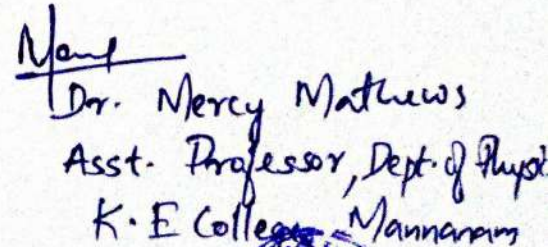 Dr. Mercy Mathews
Asst. Professor, Dept. of
K. E College Mannanam